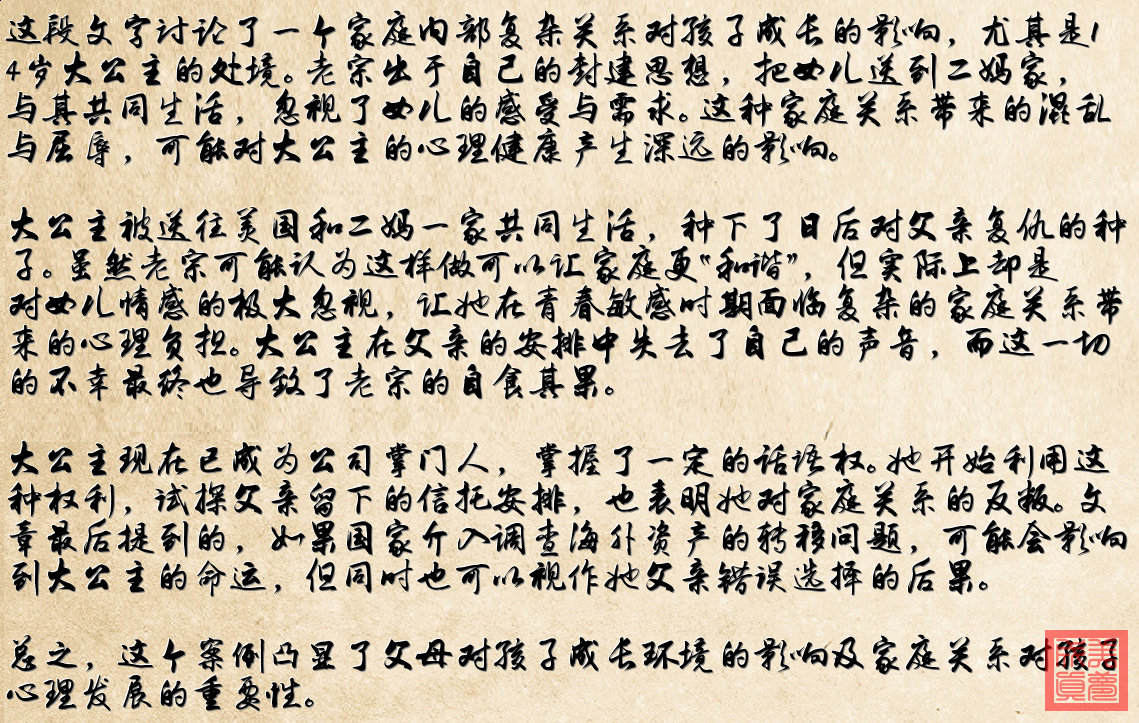 这段文字讨论了一个家庭内部复杂关系对孩子成长的影响，尤其是1
4岁大公主的处境。老宗出于自己的封建思想，把女儿送到二妈家，
与其共同生活，忽视了女儿的感受与需求。这种家庭关系带来的混乱
与屈辱，可能对大公主的心理健康产生深远的影响。
大公主被送往美国和二妈一家共同生活，种下了日后对父亲复仇的种
子。虽然老宗可能认为这样做可以让家庭更“和谐”，但实际上却是
对女儿情感的极大忽视，让她在青春敏感时期面临复杂的家庭关系带
来的心理负担。大公主在父亲的安排中失去了自己的声音，而这一切
的不幸最终也导致了老宗的自食其果。
大公主现在已成为公司掌门人，掌握了一定的话语权。她开始利用这
种权利，试探父亲留下的信托安排，也表明她对家庭关系的反叛。文
章最后提到的，如果国家介入调查海外资产的转移问题，可能会影响
到大公主的命运，但同时也可以视作她父亲错误选择的后果。
总之，这个案例凸显了父母对孩子成长环境的影响及家庭关系对孩子
心理发展的重要性。